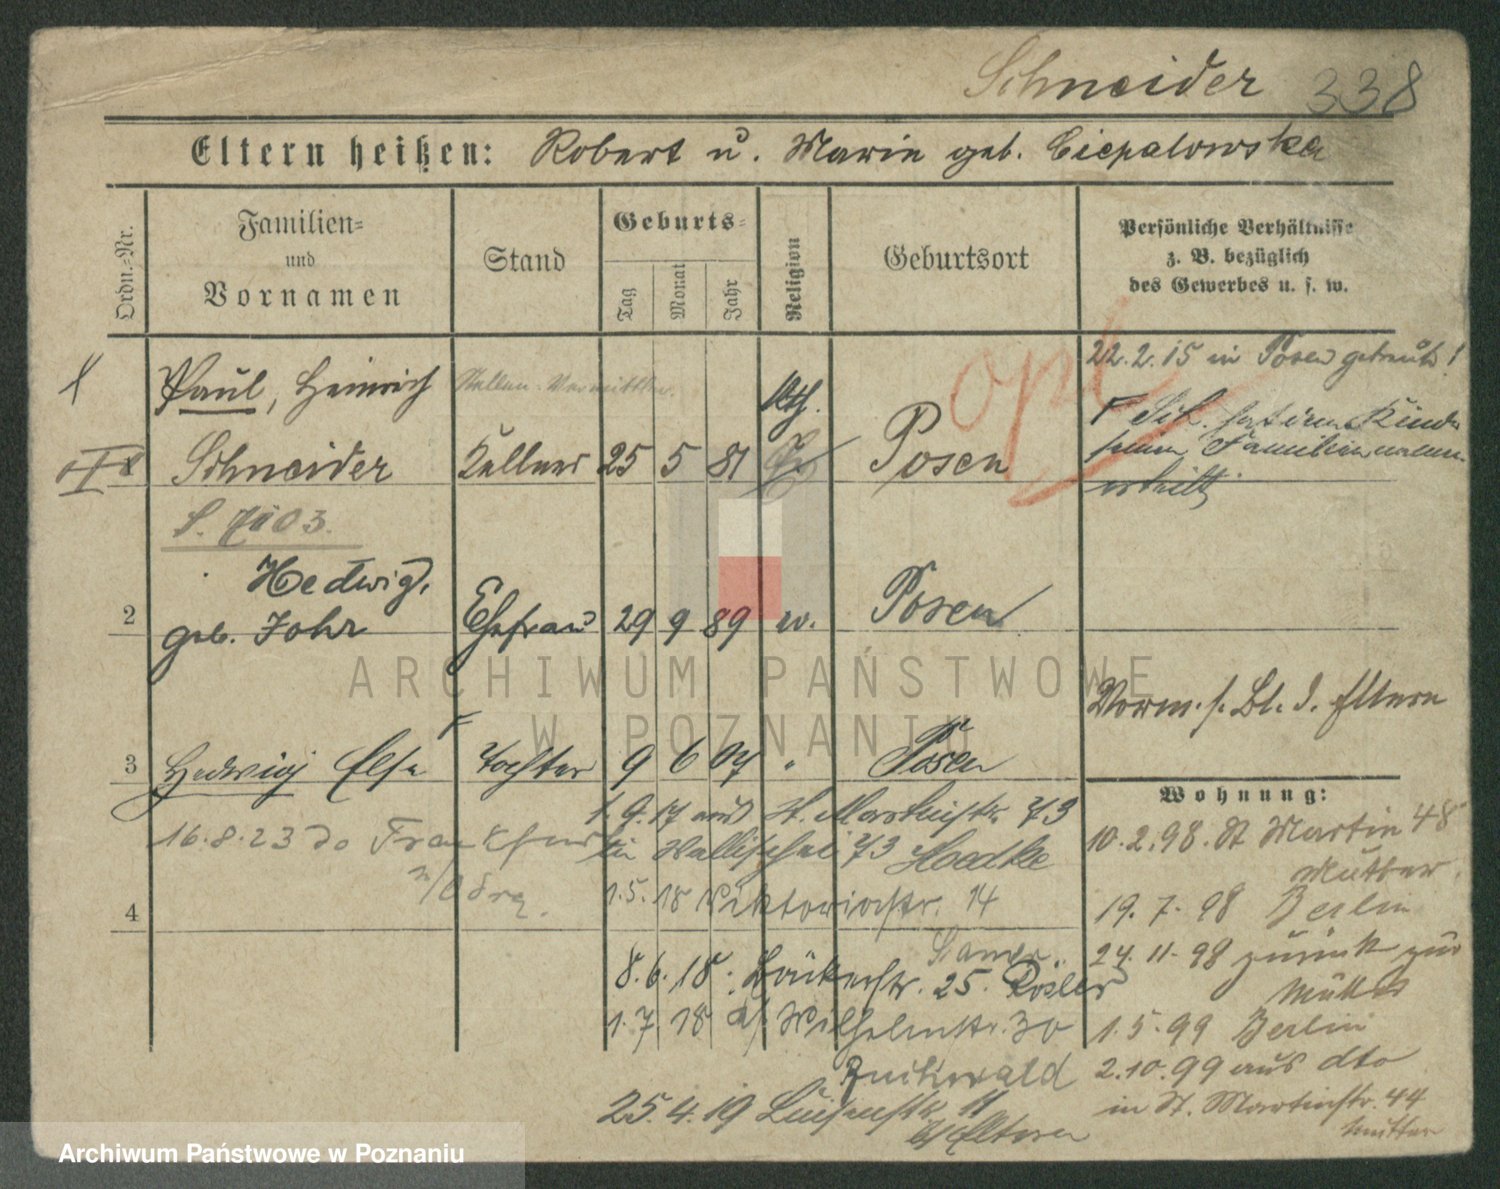 Schneider 338
Eltern heißen: Robert u. Marie geb. Ciepalowska
Ordn.=Nr.
Familien=
und
Vornamen
Stand
Geburts=
Tag
Monat
Jahr
Religion
Geburtsort
Persönliche Verhältnisse
z. B. bezüglich
des Gewerbes u. s. w.
Paul, Heinrich
Schneider
Stellen-Vermittler
Kellner
25 5 81
Kth.
Posen
opt
22.2.15 in Posen getraut!
Sch. hat dem Kinde
seinen Familiennamen
erteilt.
S. 7003.
2
Hedwig,
geb. Johr
Ehefrau
29 9 89
Posen
Vorm. s. Bl. d. Eltern
3
Hedwig Else
Tochter
9 6 07
"
Posen
16.8.23 do Frankfurt
n/Odrą.
4
1.9.17 aus St. Martinstr. 73
in Wallischei 73 Hoedke
1.5.18 Viktoriastr. 14
8.6.18. Bäckerstr. 25. Rösler
1.7.18 Wilhelmstr. 30
25.4.19 Luisenstr. 11
b/ Eltern
Wohnung:
10.2.98. St Martin 48
Mutter.
19.7.98 Berlin
24.11.98 zurück zur
Mutter
1.5.99 Berlin
2.10.99 aus dto
in St. Martinstr. 44
Mutter
ARCHIWUM PAŃSTWOWE
W POZNANIU
Archiwum Państwowe w Poznaniu